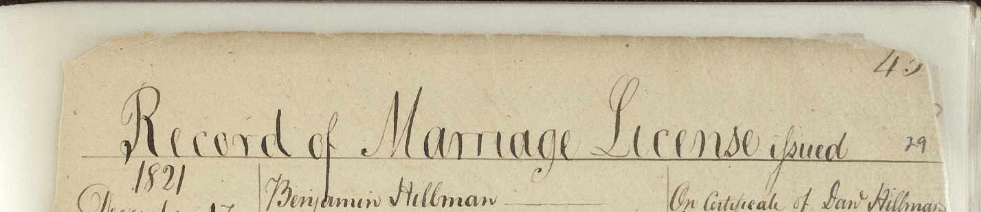 Record of Marriage License issued
29
1821
Benjamin Hillman
On Certificate of Danl Hillman